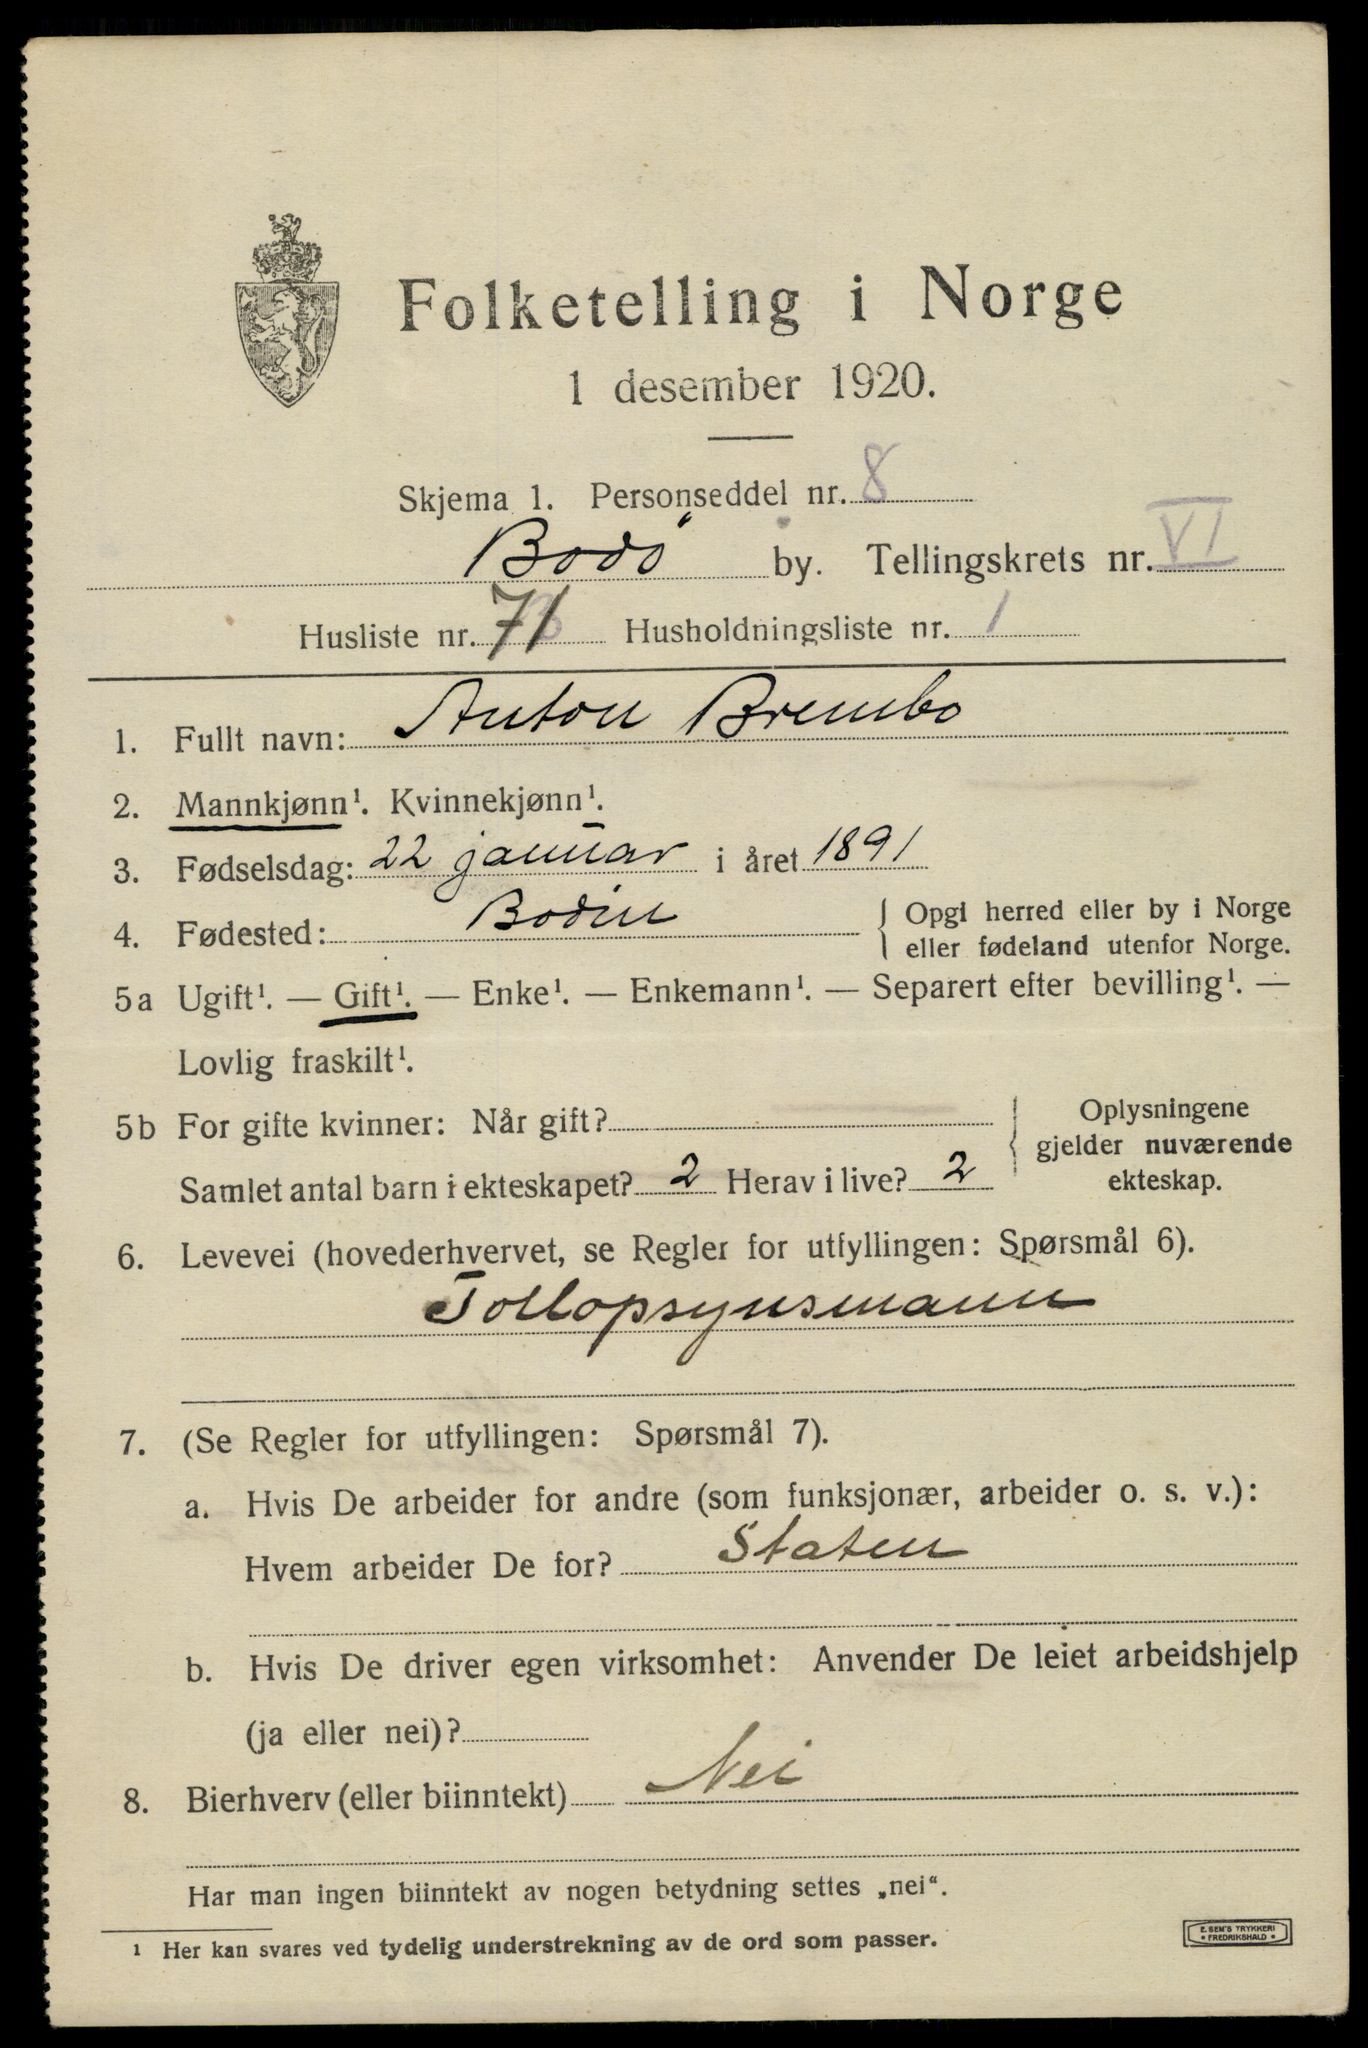 Folketelling i Norge
1 desember 1920.
Skjema 1. Personseddel nr. 8
Bodö by. Tellingskrets nr. VI
Husliste nr. 71 Husholdningsliste nr. 1
1. Fullt navn: Anton Brembo
2. Mannkjønn¹. Kvinnekjønn¹.
3. Fødselsdag: 22 januar i året 1891
4. Fødested: Bodin { Opgi herred eller by i Norge
eller fødeland utenfor Norge.
5a Ugift¹. — Gift¹. — Enke¹. — Enkemann¹. — Separert efter bevilling¹. —
Lovlig fraskilt¹.
5b For gifte kvinner: Når gift? { Oplysningene
gjelder nuværende
ekteskap.
Samlet antal barn i ekteskapet? 2 Herav i live? 2
6. Levevei (hovederhvervet, se Regler for utfyllingen: Spørsmål 6).
Tollopsynsmann
7. (Se Regler for utfyllingen: Spørsmål 7).
a. Hvis De arbeider for andre (som funksjonær, arbeider o. s. v.):
Hvem arbeider De for? Staten
b. Hvis De driver egen virksomhet: Anvender De leiet arbeidshjelp
(ja eller nei)?
8. Bierhverv (eller biinntekt) Nei
Har man ingen biinntekt av nogen betydning settes „nei“.
¹ Her kan svares ved tydelig understrekning av de ord som passer.
E. SEM'S TRYKKERI
• FREDRIKSHALD •